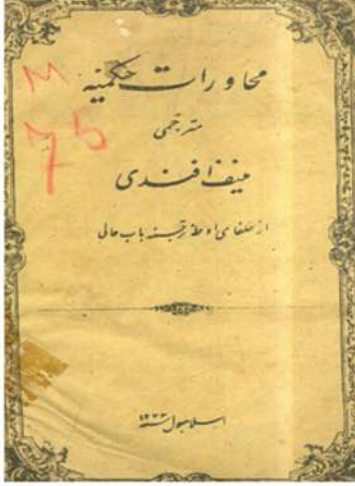 محاورات حكميه
مترجمى
منيف افندى
از خلفاى اوطه ترجمه باب عالى
اسلامبول سنه
M
75